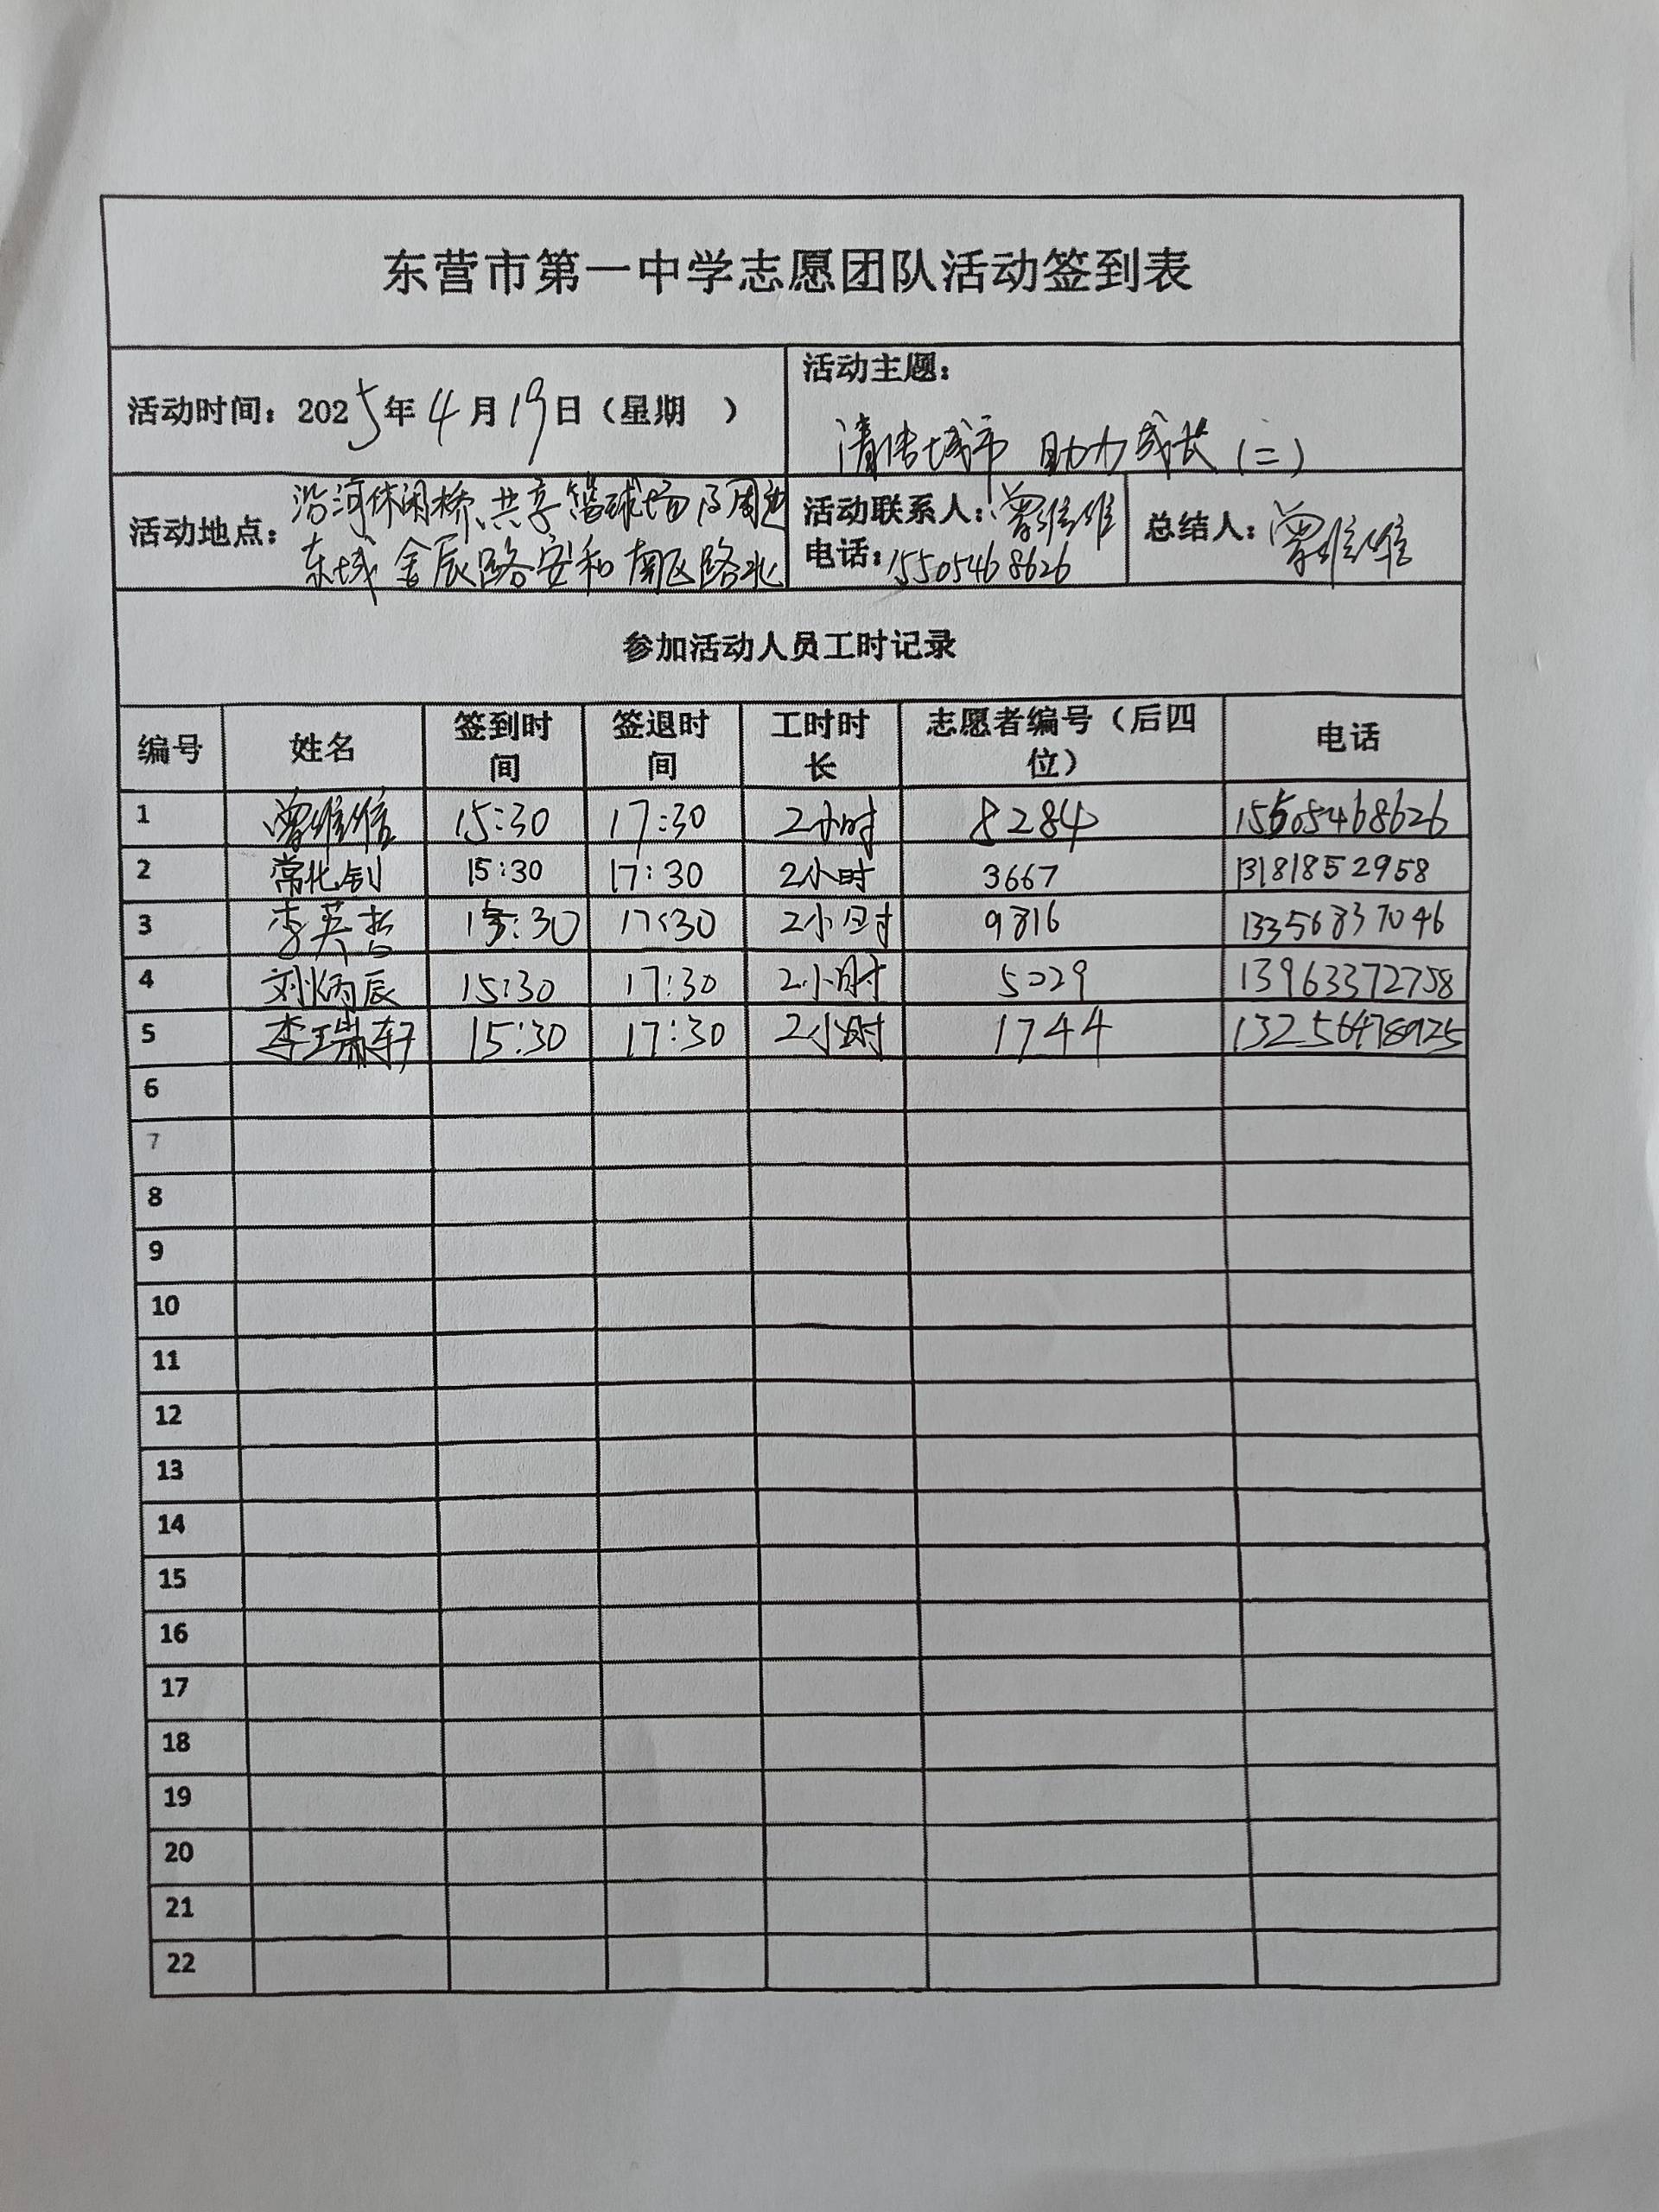 东营市第一中学志愿团队活动签到表
活动时间：2025年4月19日（星期　）
活动主题：
清洁城市 助力成长（二）
活动地点：沿河休闲桥、共享篮球场及周边
东城金辰路安和南区路北
活动联系人：曾维维
电话：15505468626
总结人：曾维维
参加活动人员工时记录
编号 姓名 签到时间 签退时间 工时时长 志愿者编号（后四位） 电话
1 曾维维 15:30 17:30 2小时 8284 15505468626
2 常化钊 15:30 17:30 2小时 3667 13181852958
3 李英哲 15:30 17:30 2小时 9816 13356837046
4 刘炳辰 15:30 17:30 2小时 5029 13963372758
5 李瑞轩 15:30 17:30 2小时 1744 13256478925
6
7
8
9
10
11
12
13
14
15
16
17
18
19
20
21
22